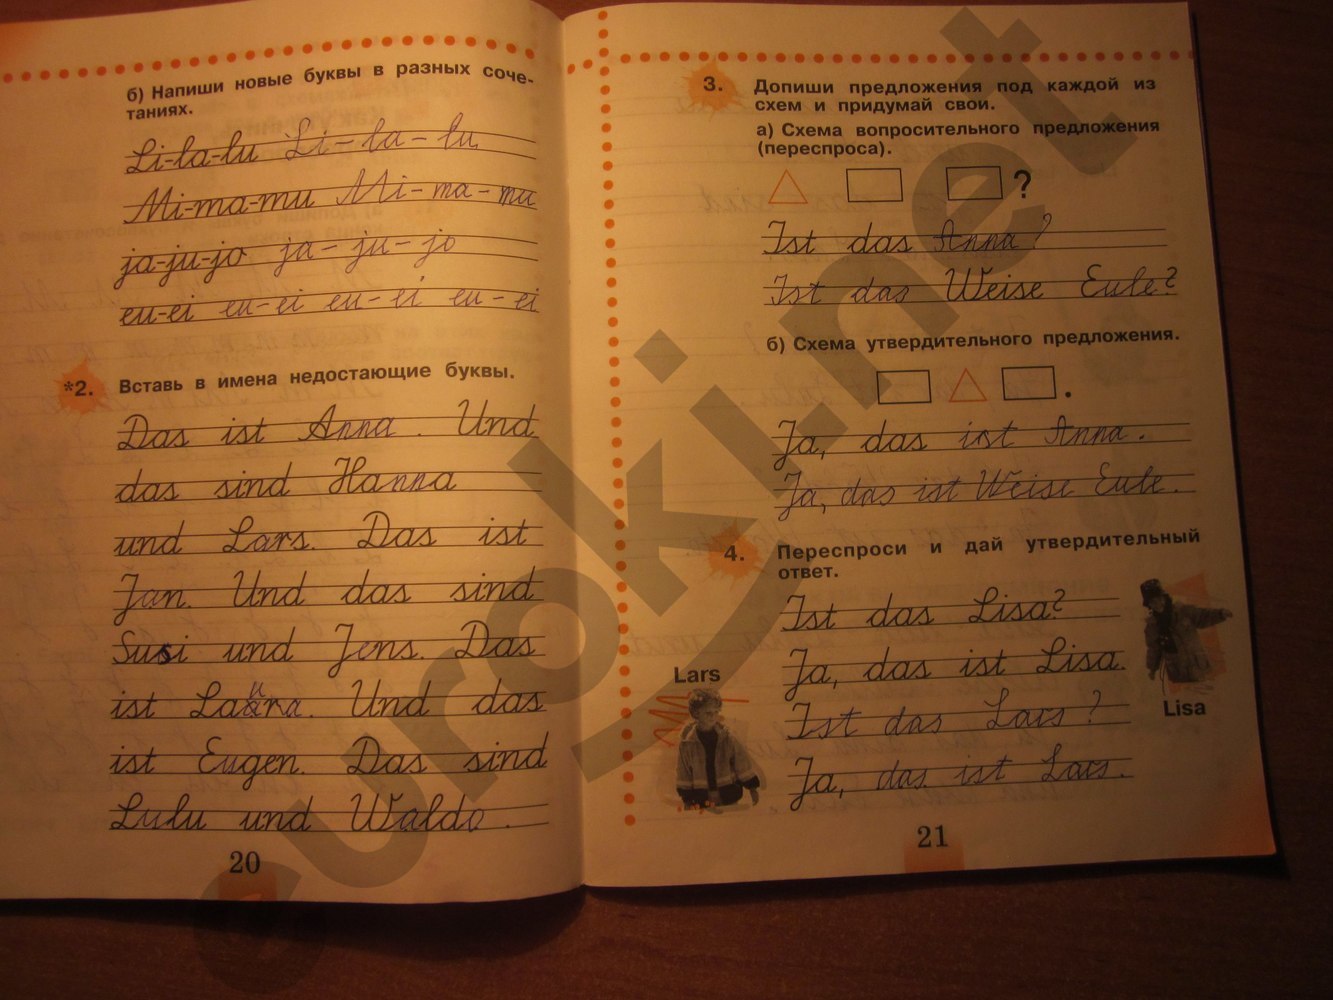 б) Напиши новые буквы в разных соче-
таниях.
Li-la-lu Li-la-lu
Mi-ma-mu Mi-ma-mu
ja-ju-jo ja-ju-jo
eu-ei eu-ei eu-ei eu-ei
*2. Вставь в имена недостающие буквы.
Das ist Anna. Und
das sind Hanna
und Lars. Das ist
Jan. Und das sind
Susi und Jens. Das
ist Laura. Und das
ist Eugen. Das sind
Lulu und Waldo.
20
3. Допиши предложения под каждой из
схем и придумай свои.
а) Схема вопросительного предложения
(переспроса).
?
Ist das Anna?
Ist das Weise Eule?
б) Схема утвердительного предложения.
.
Ja, das ist Anna.
Ja, das ist Weise Eule.
4. Переспроси и дай утвердительный
ответ.
Ist das Lisa?
Ja, das ist Lisa.
Lars
Lisa
Ist das Lars?
Ja, das ist Lars.
21
euroki.net